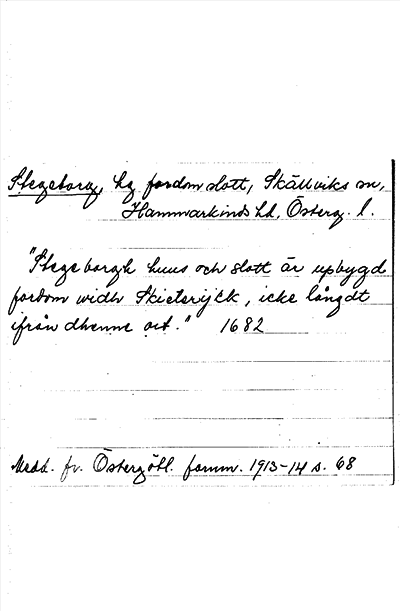 Stegeborg, hg fordom slott, Skällviks sn,
Hammarkinds hd, Österg. l.
"Stegeborgh huus och slott är upbygd
fordom widh Skieterijck, icke långdt
ifrån dhenne ort." 1682
Medd. fr. Östergötl. fornm. 1913-14 s. 68